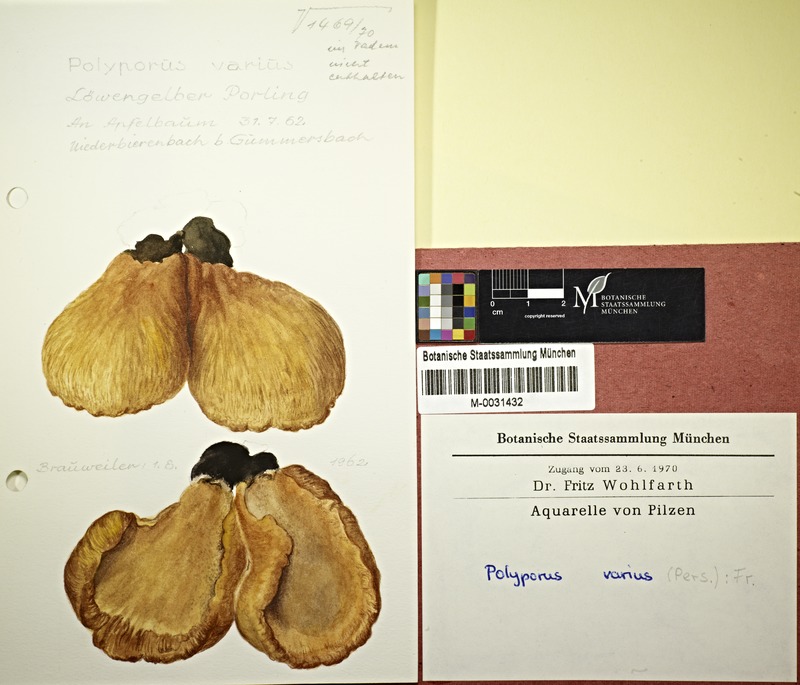 1469/70
im
nicht
enthalten
Polyporus varius
Löwengelber Porling
An Apfelbaum 31.7.62.
Niederbierenbach b. Gummersbach
Brauweiler, 1. 8. 1962.
0 1 2
cm
copyright reserved
M BOTANISCHE
STAATSSAMMLUNG
MÜNCHEN
Botanische Staatssammlung München
M-0031432
Botanische Staatssammlung München
Zugang vom 23. 6. 1970
Dr. Fritz Wohlfarth
Aquarelle von Pilzen
Polyporus varius (Pers.) : Fr.